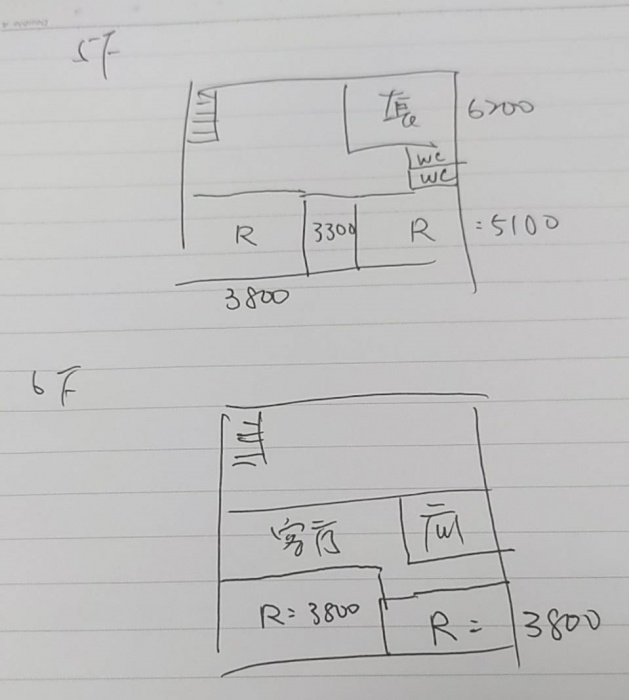 5F
6200
WC
WC
R
3300
R
=5100
3800
6F
客厅
R=3800
R=
3800